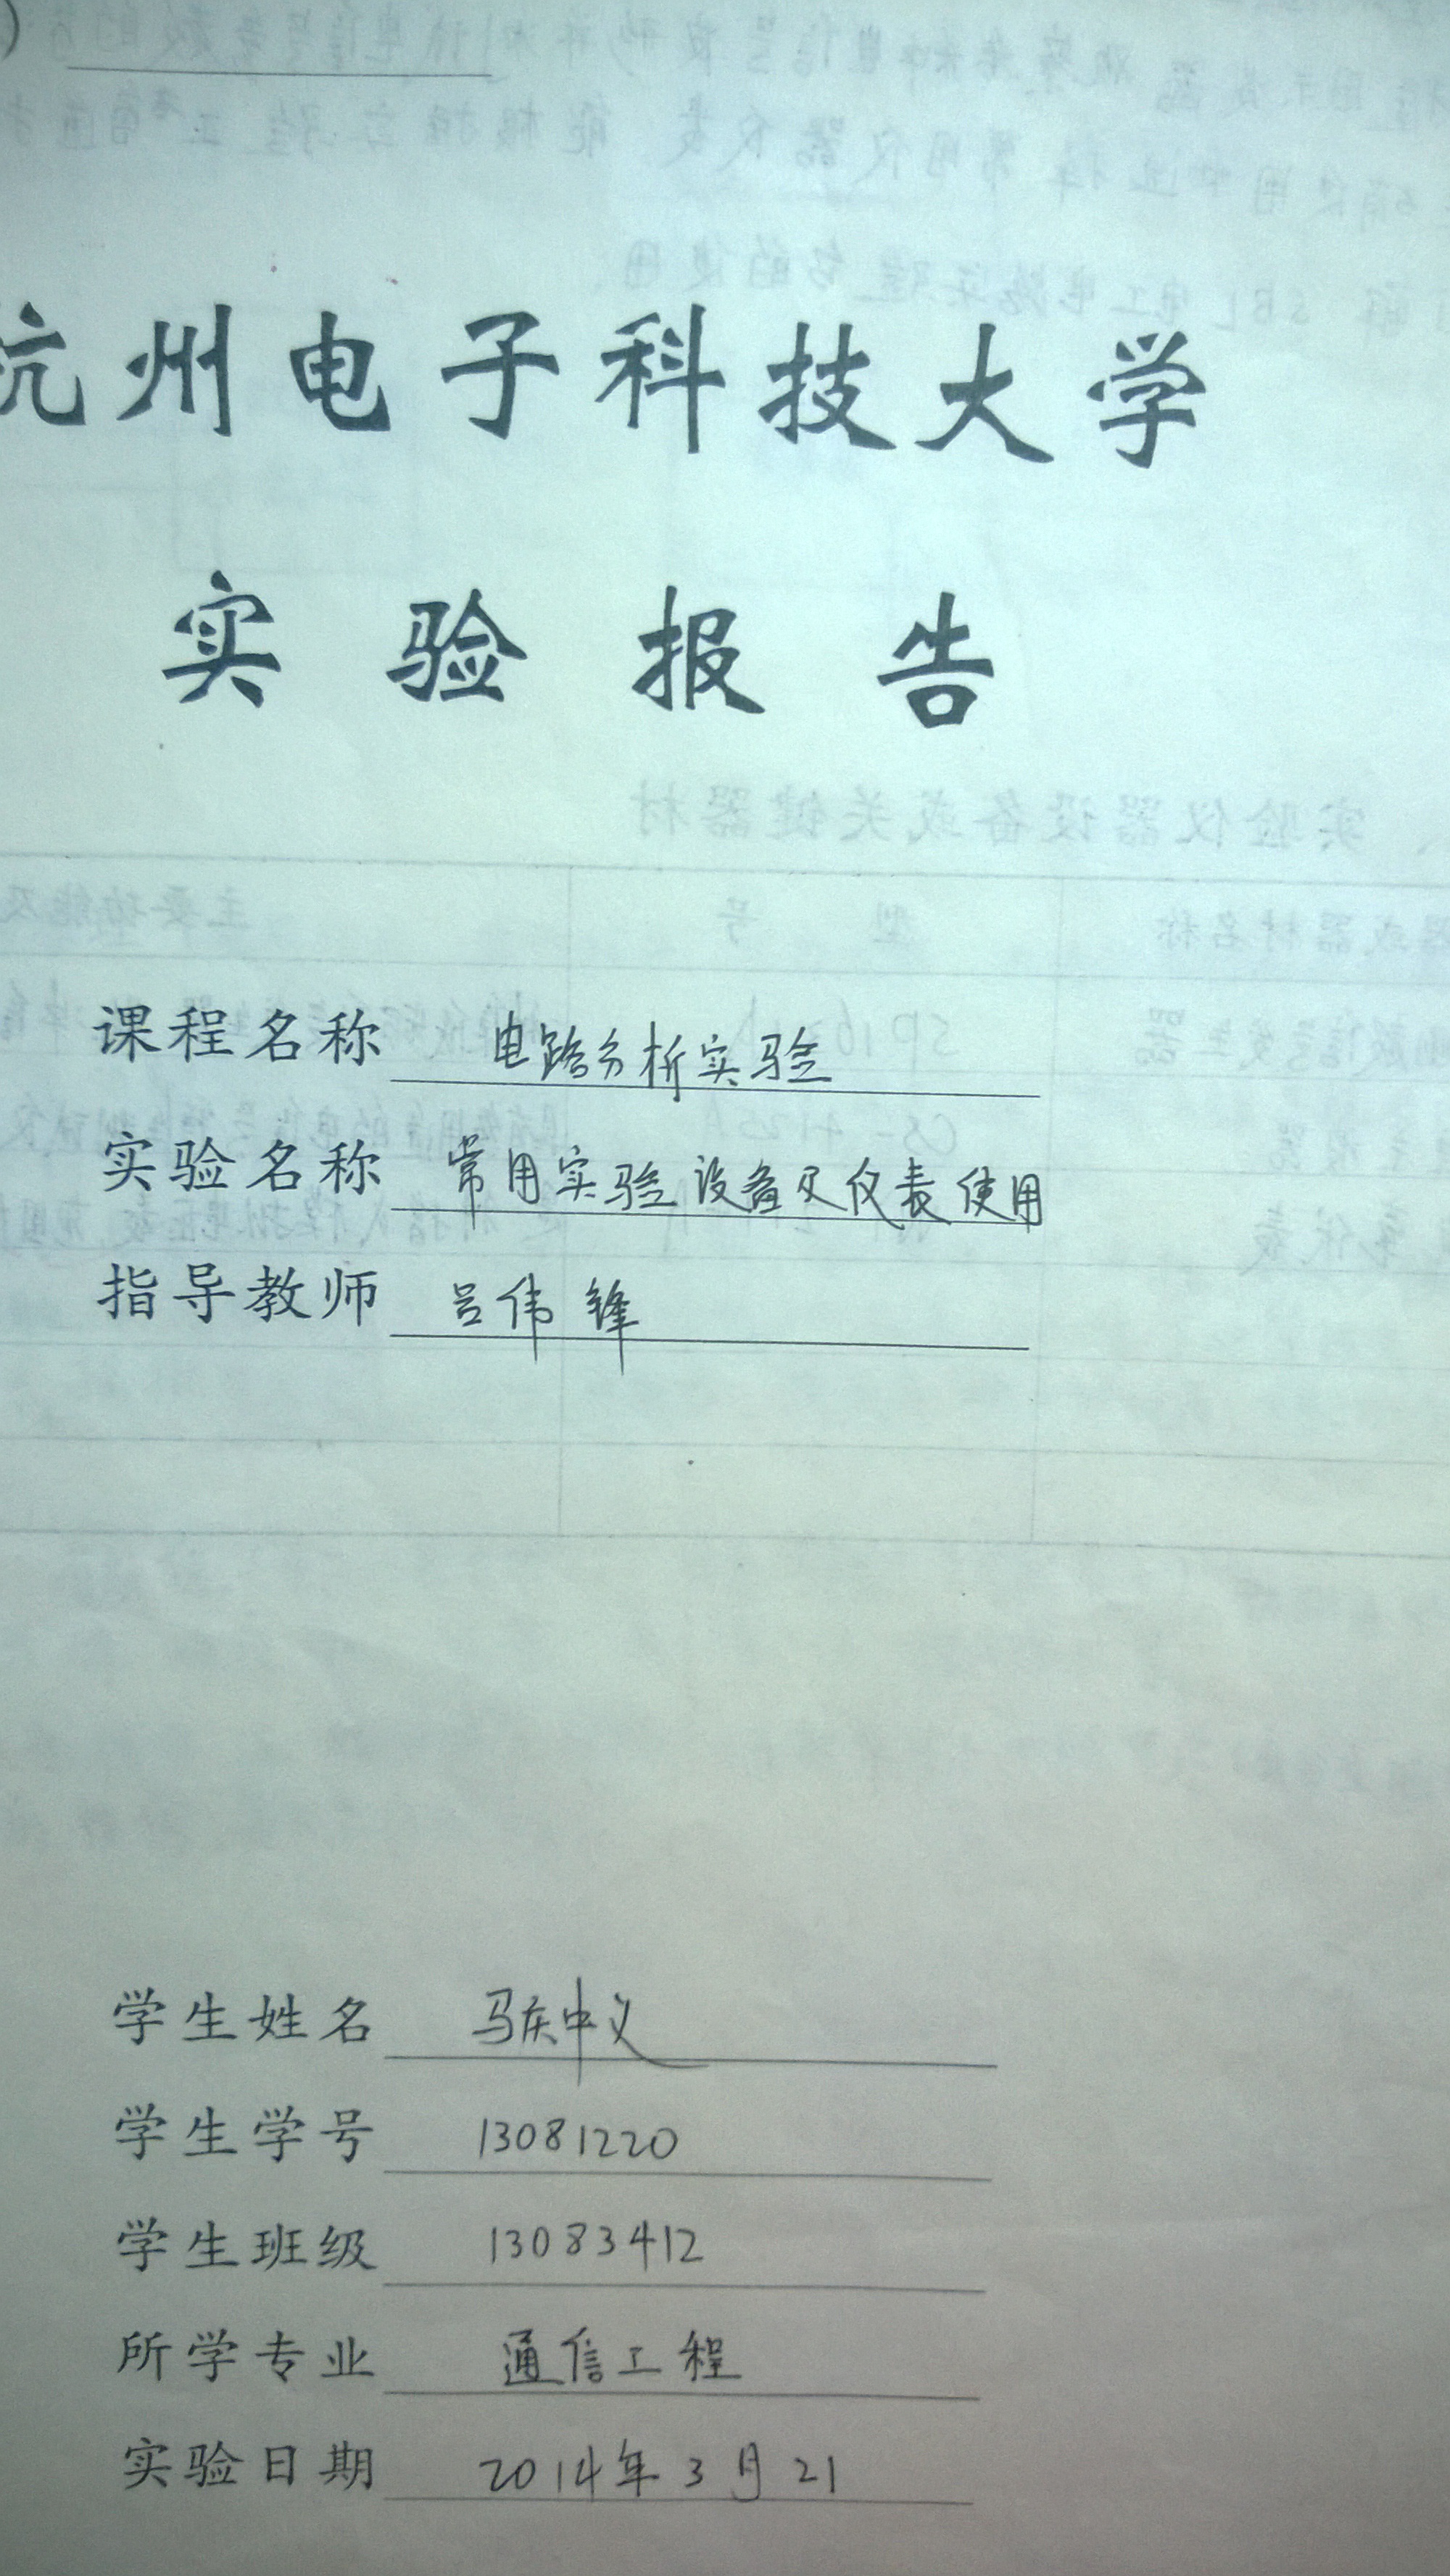 杭州电子科技大学
实验报告
课程名称 电路分析实验
实验名称 常用实验设备及仪表使用
指导教师 吕伟锋
学生姓名 马庆中义
学生学号 13081220
学生班级 13083412
所学专业 通信工程
实验日期 2014年3月21